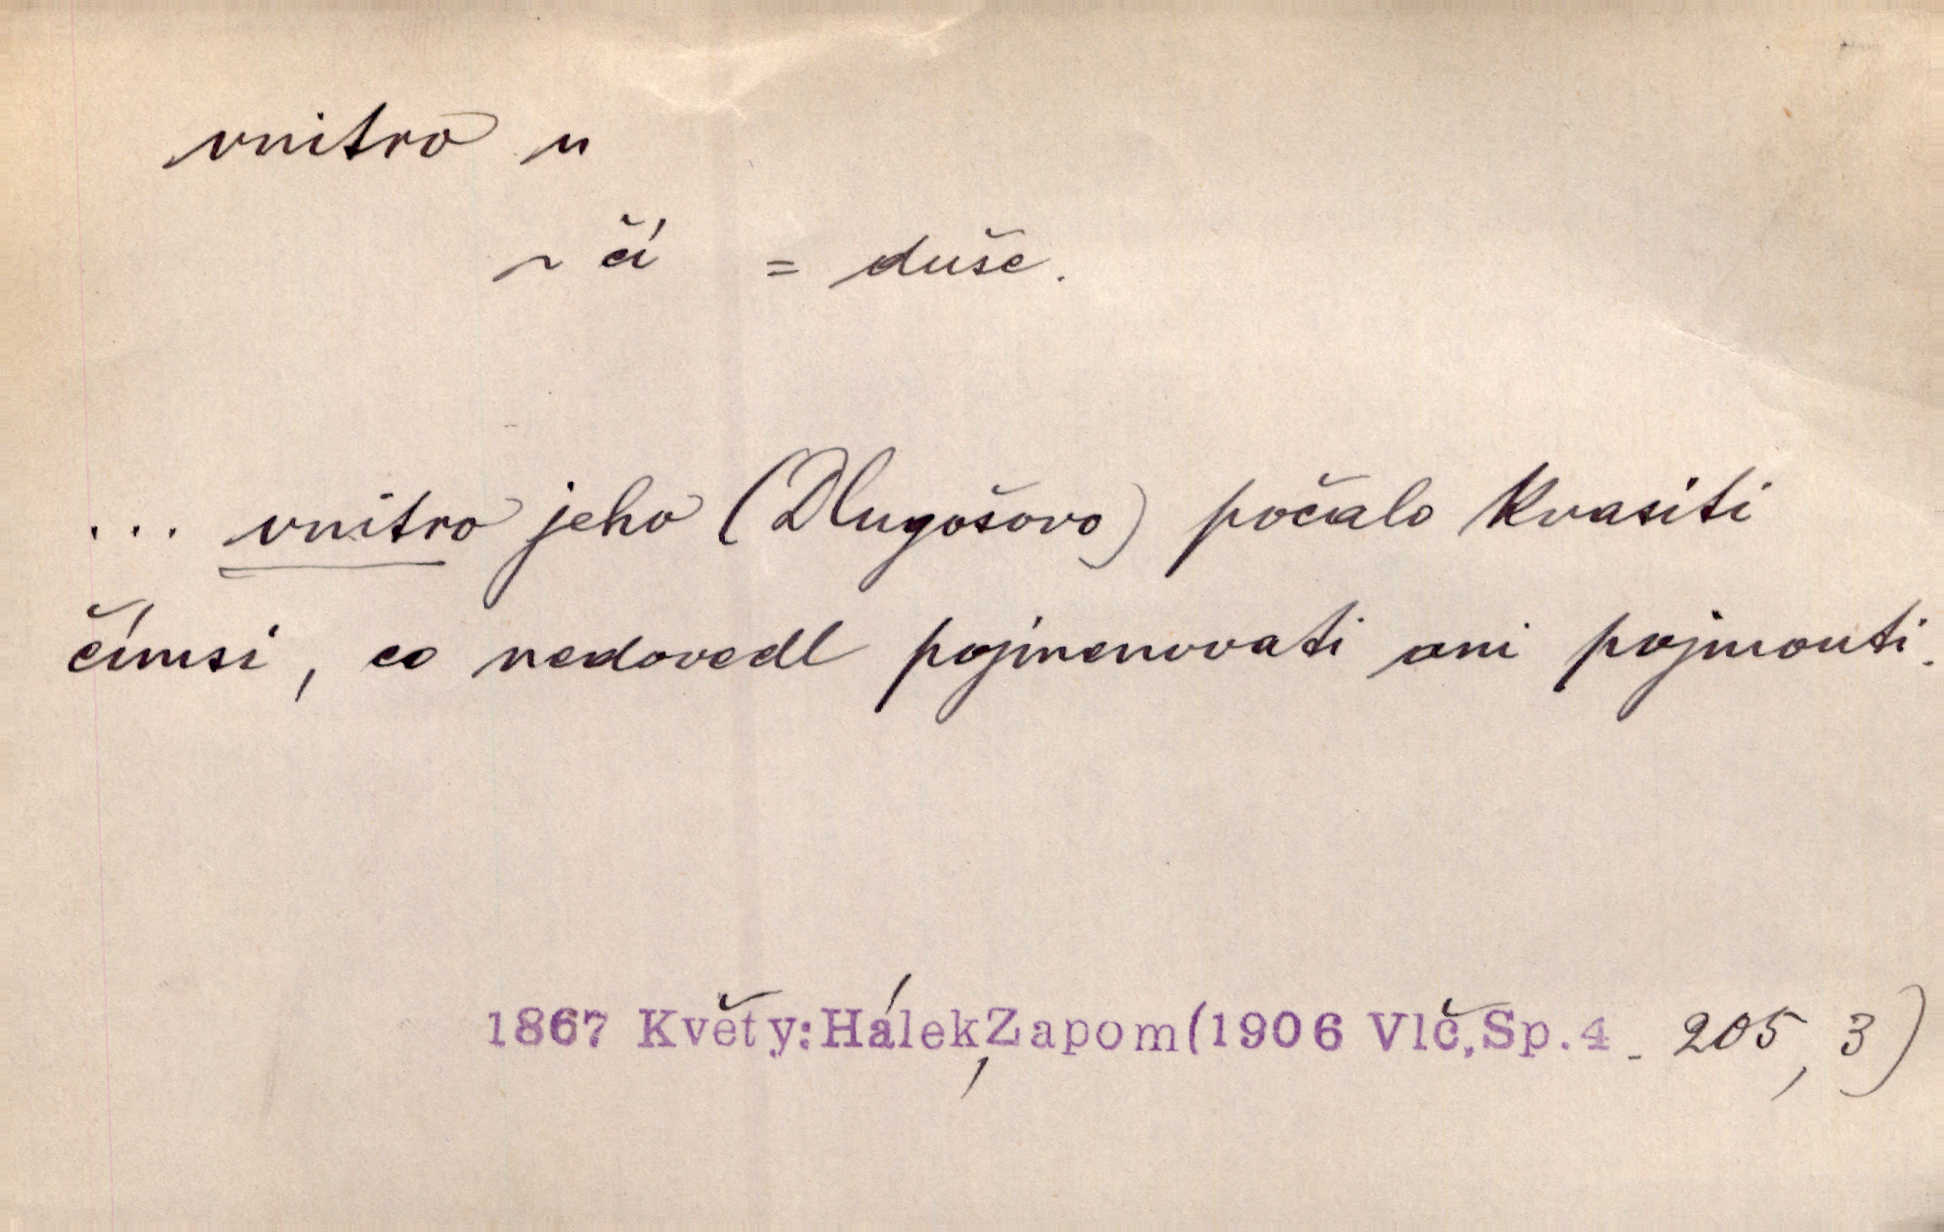 vnitro n
~ čí = duše.
... vnitro jeho (Dlugošovo) počalo kvasiti
čímsi, co nedovedl pojmenovati ani pojmouti.
1867 Květy: Hálek, Zapom (1906 Vlč, Sp. 4 - 205, 3)